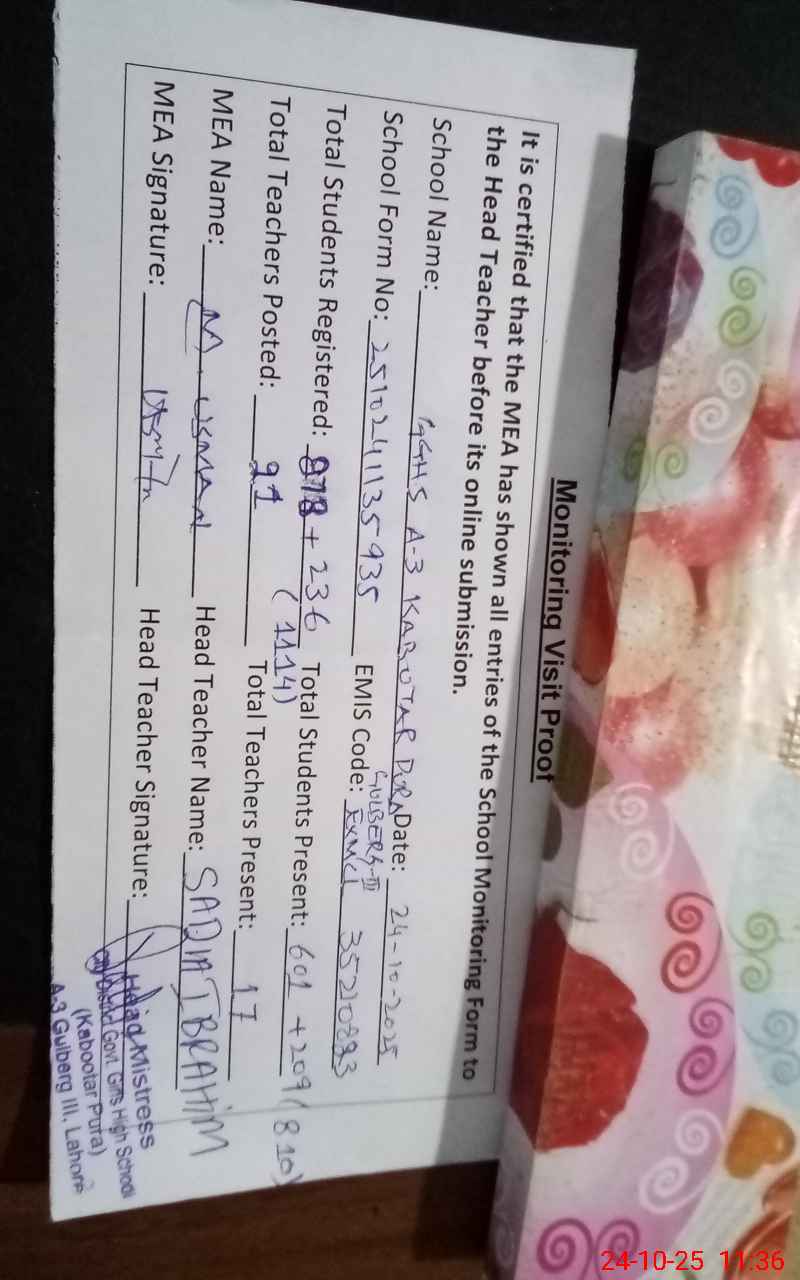 Monitoring Visit Proof
It is certified that the MEA has shown all entries of the School Monitoring Form to
the Head Teacher before its online submission.
School Name: GGHS A-3 KABUTAR PURA Date: 24-10-2025
GULBERG-III
School Form No: 2510241135935 EMIS Code: 35210823
Total Students Registered: 878 + 236 Total Students Present: 601 + 209 (810)
(1114)
Total Teachers Posted: 21 Total Teachers Present: 17
MEA Name: M. USMAN Head Teacher Name: SADIA IBRAHIM
MEA Signature: Head Teacher Signature:
Head Mistress
City District Govt. Girls High School
(Kabootar Pura)
A-3 Gulberg III, Lahore
24-10-25 11:36